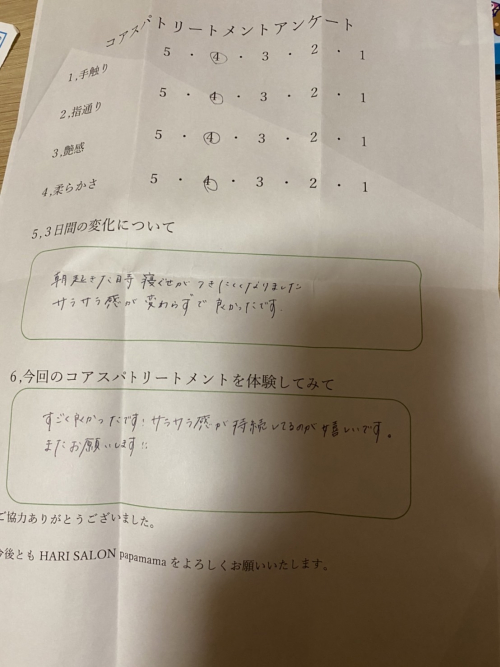 コアスパトリートメントアンケート
1,手触り 5 ・ 4 ・ 3 ・ 2 ・ 1
2,指通り 5 ・ 4 ・ 3 ・ 2 ・ 1
3,艶感 5 ・ 4 ・ 3 ・ 2 ・ 1
4,柔らかさ 5 ・ 4 ・ 3 ・ 2 ・ 1
5,3日間の変化について
朝起きた時寝ぐせがつきにくくなりました
サラサラ感が変わらずで良かったです。
6,今回のコアスパトリートメントを体験してみて
すごく良かったです!サラサラ感が持続してるのが嬉しいです。
またお願いします!!
ご協力ありがとうございました。
今後とも HARI SALON papamama をよろしくお願いいたします。